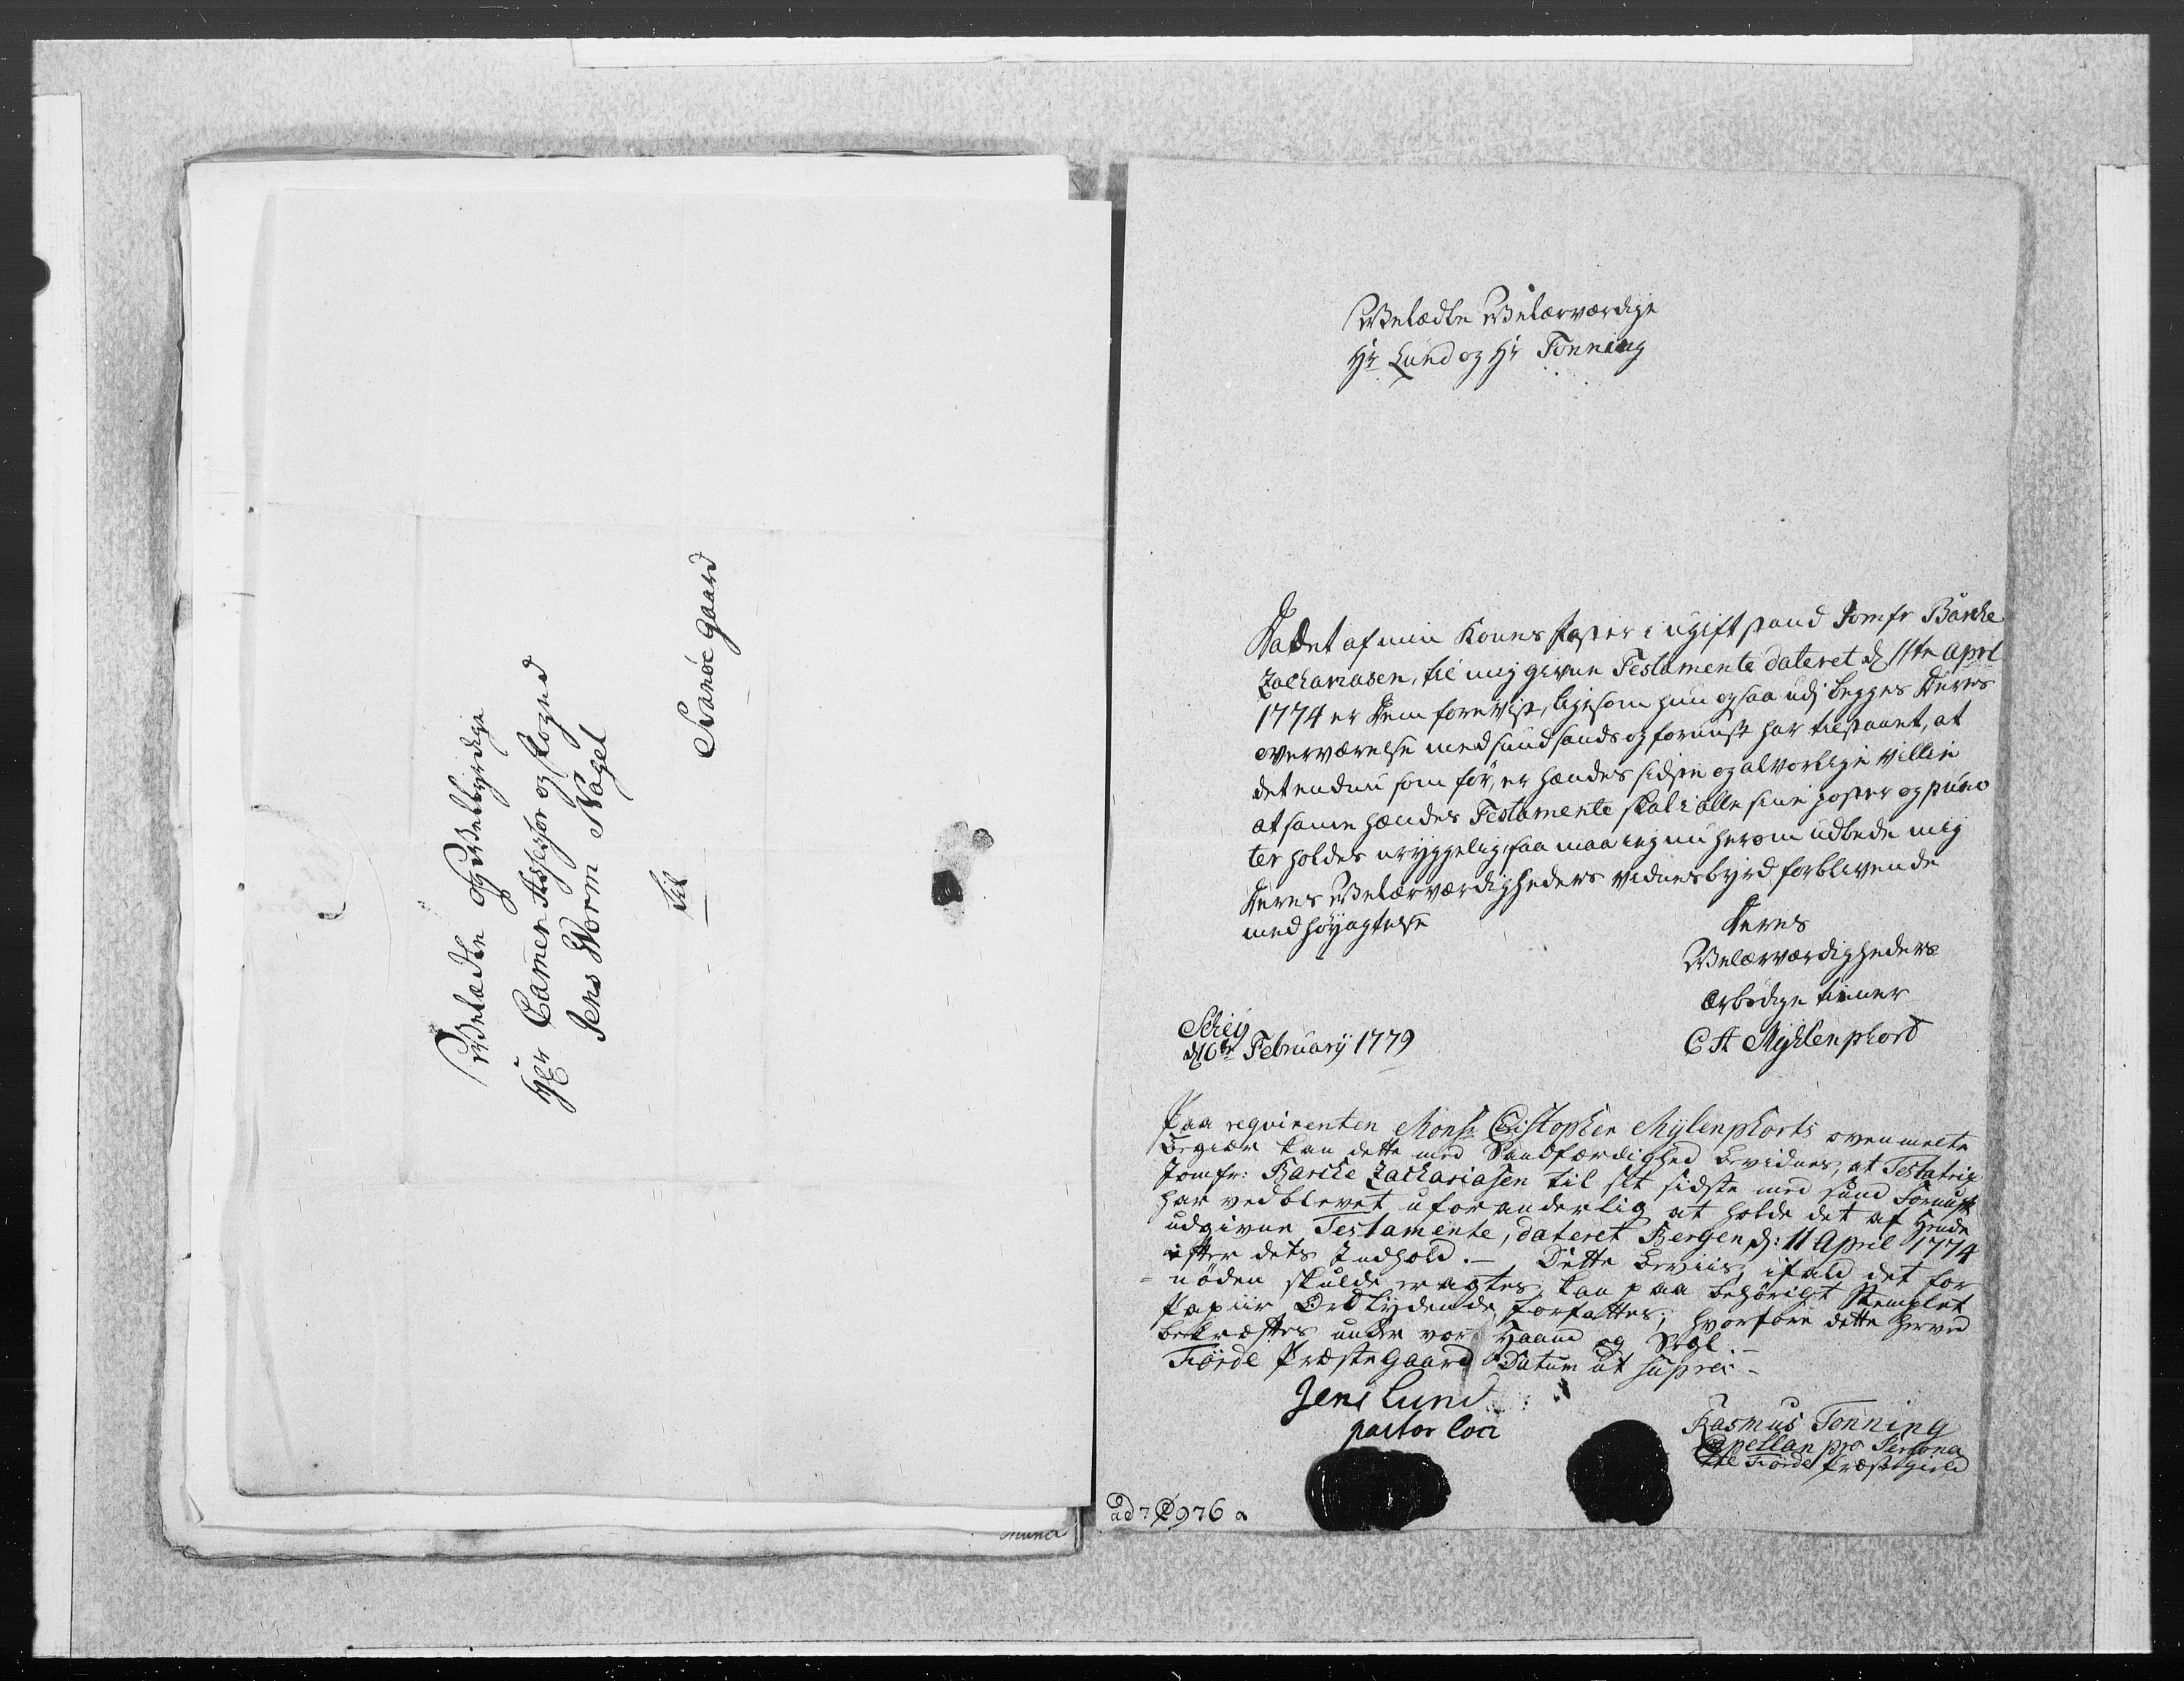 Velædle og Velbyrdige
Hr Camer Assessor og Foged
Jens Worm Nagel
til
Svanöe Gaard
Velædle Velærværdige
Hr Lund og Hr Tonning
Da det af min Kones Faster i ugift stand Jomfr Barche
Zachariasen, til mig givne Testamente dateret d 11te Aprl
1774 er Dem forevist, ligesom hun ogsaa udj begges Deres
overværelse med sund sands og fornuft har tilstaaet, at
det endnu som før, er hændes sidste og alvorlige villie
at samme hændes Testamente skal i alle sine poster og punc
ter holdes uryggelig, saa maa ieg nu herom udbede mig
Deres Velærværdigheders vidnesbyrd forblivende
med høyagtelse
Deres
Velærværdigheders
ærbødige tiener
C A Myhlenphort
Schey
d 16de February 1779
Paa reqvirenten Monsr Cristopher Mylenphorts ovenmelte
Begiær kan dette med Sandfærdighed bevidnes, at Testatrix
Jomfr: Barche Zachariasen til sit sidste med sund Fornuft
har vedblevet uforanderlig at holde det af Hende
udgivne Testamente, dateret Bergen d: 11 April 1774
efter dets Indhold. - Dette Beviis, ifald det for
nöden skulde eragtes, kan paa behörigt Stemplet
Papiir Ordlydende forfattes; hvorfore dette herved
bekræftes under vor Haand og Segl. -
Förde Præstegaard Datum ut supra -
Jens Lund
pastor loci
Rasmus Tonning
Capellan pro Persona
til Förde Præstegield
ad 976 a